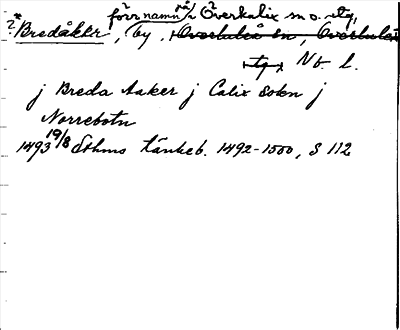 förr namn på Överkalix sn o. -tg,
?* Bredåker, by, i Överkalix sn, Överkalix
-tg, Nb l.
j Breda Aaker j Calix Sokn j
Norrebotn
1493 19/8 Sthms tänkeb. 1492-1500, S 112